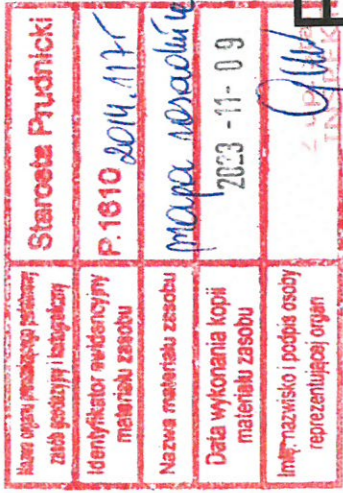 Nazwa organu prowadzącego państwowy
zasób geodezyjny i kartograficzny
Starosta Prudnicki
Identyfikator ewidencyjny
materiału zasobu
P.1610 2014.1175
Nazwa materiału zasobu
mapa zasadnicza
Data wykonania kopii
materiału zasobu
2023 -11- 09
Imię, nazwisko i podpis osoby
reprezentującej organ